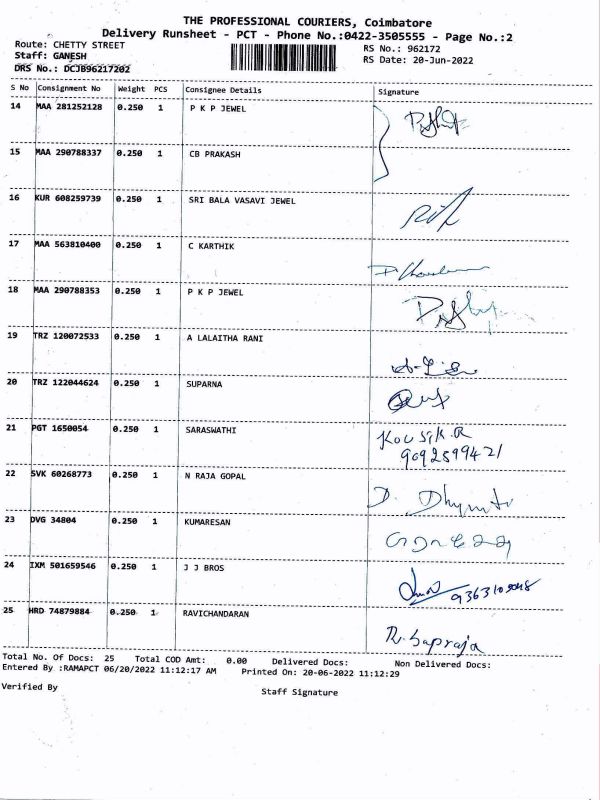 THE PROFESSIONAL COURIERS, Coimbatore
Delivery Runsheet - PCT - Phone No.:0422-3505555 - Page No.:2
Route: CHETTY STREET
RS No.: 962172
Staff: GANESH
RS Date: 20-Jun-2022
DRS No.: DCJB96217202
S No Consignment No Weight PCS Consignee Details Signature
14 MAA 281252128 0.250 1 P K P JEWEL
15 MAA 290788337 0.250 1 CB PRAKASH
16 KUR 608259739 0.250 1 SRI BALA VASAVI JEWEL
17 MAA 563810400 0.250 1 C KARTHIK
18 MAA 290788353 0.250 1 P K P JEWEL
19 TRZ 120072533 0.250 1 A LALAITHA RANI
20 TRZ 122044624 0.250 1 SUPARNA
21 PGT 1650054 0.250 1 SARASWATHI Kousik.R
9092599421
22 SVK 60268773 0.250 1 N RAJA GOPAL
23 DVG 34804 0.250 1 KUMARESAN
24 IXM 501659546 0.250 1 J J BROS
25 HRD 74879884 0.250 1 RAVICHANDARAN
Total No. Of Docs: 25 Total COD Amt: 0.00 Delivered Docs: Non Delivered Docs:
Entered By :RAMAPCT 06/20/2022 11:12:17 AM Printed On: 20-06-2022 11:12:29
Verified By
Staff Signature